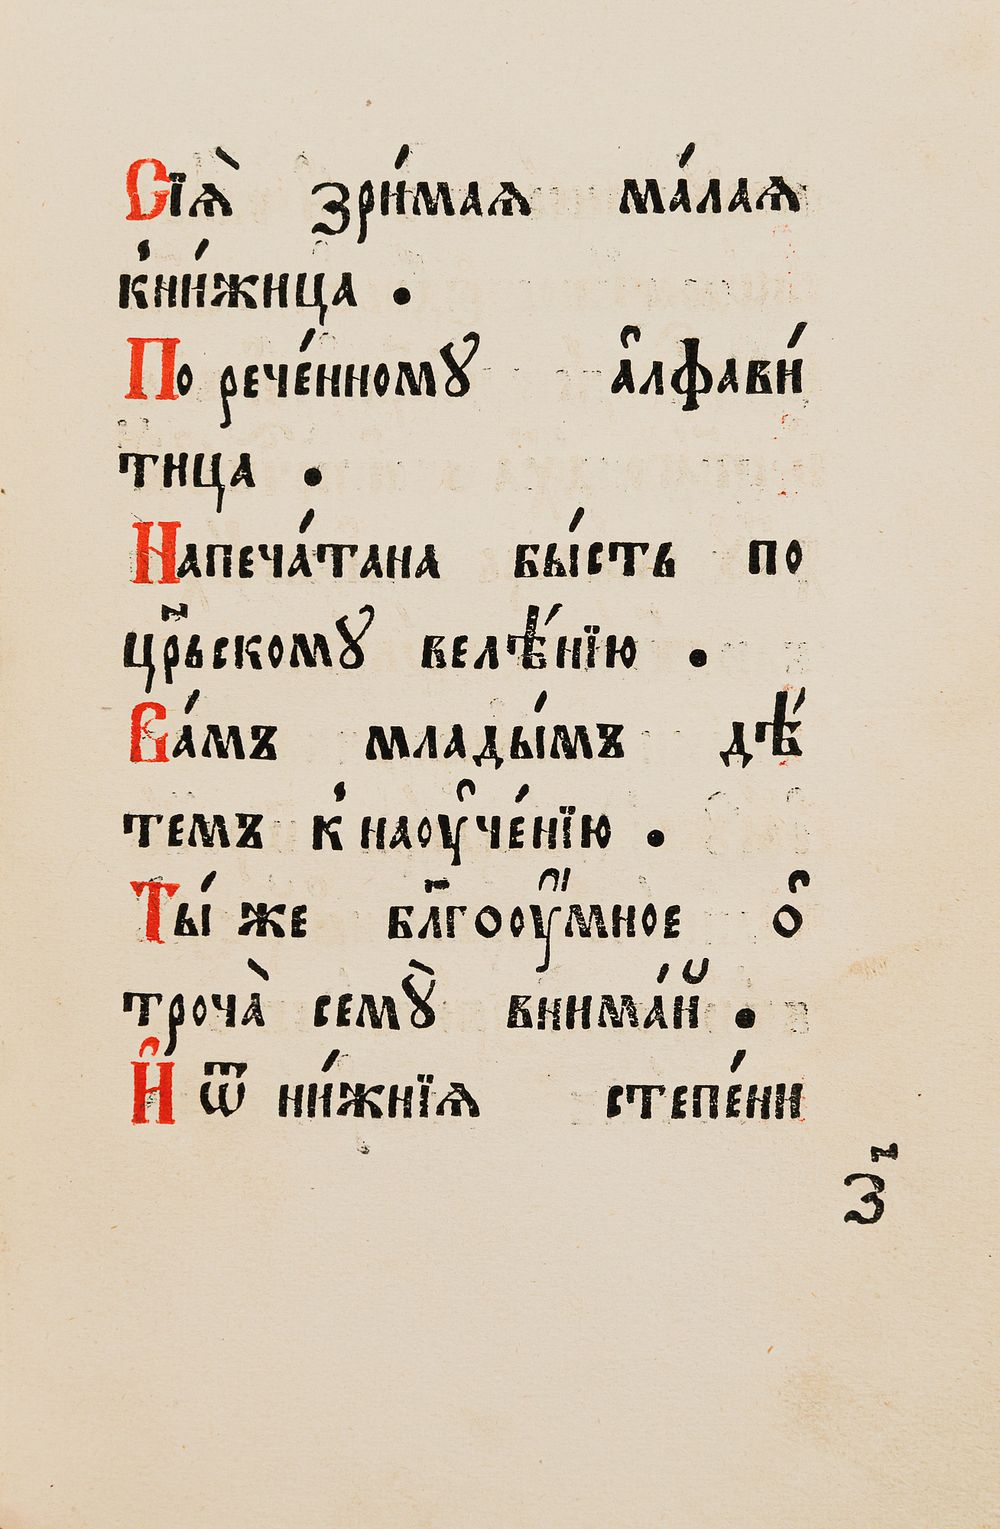 Сїѧ̀ зри́маѧ ма́лаѧ
к̾ни́жица .
По рече́нномꙋ а҆лфави́
тица .
Напеча́тана бы́сть по
цр҃ьскомꙋ велѣ́нїю .
Ва́мъ млады́мъ дѣ́
темъ к̾ наоу҆че́нїю .
Ты́ же бл҃гооу҆́мное о҆
троча̀ семꙋ̀ внима́й .
И҆ ѿ ни́жнїѧ степе́ни
з҃